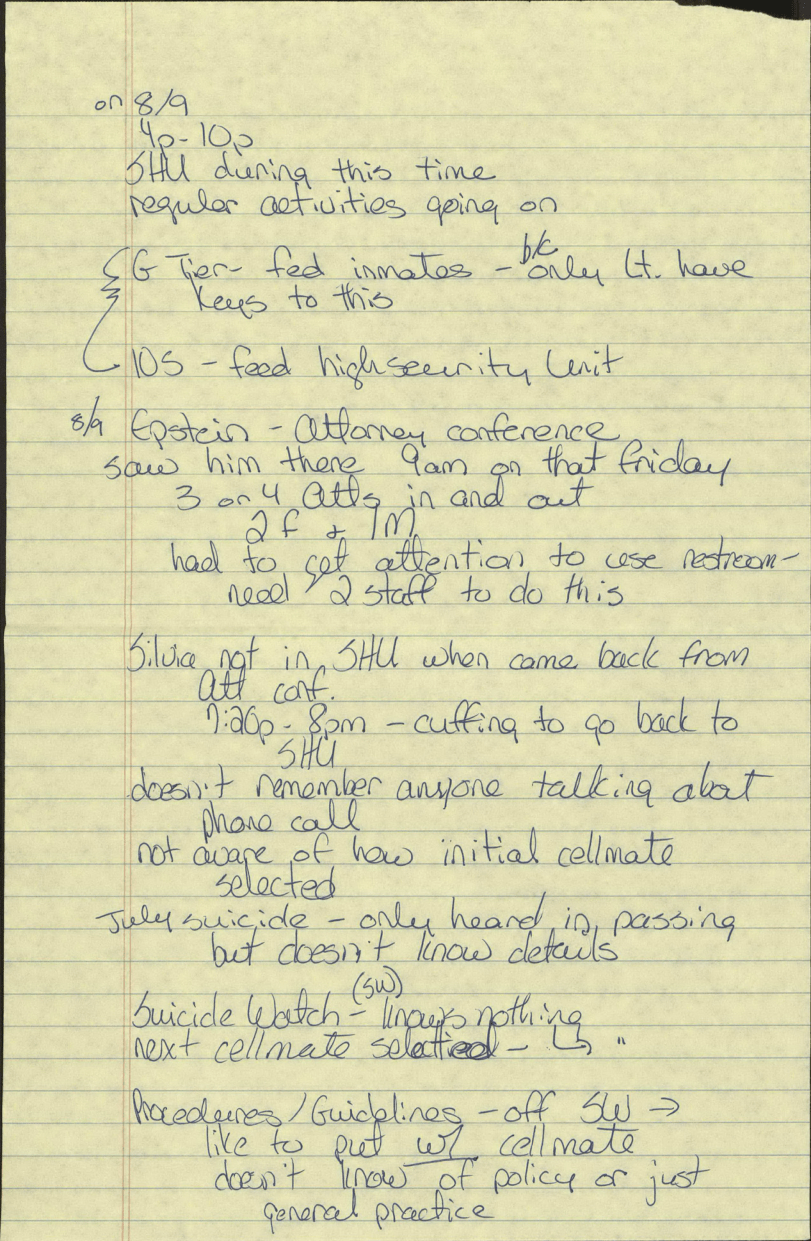 on 8/9
4p-10p
SHU during this time
regular activities going on
G Tier- fed inmates - b/c only Lt. have
keys to this
10S - feed high security Unit
8/9 Epstein - Attorney conference
saw him there 9am on that friday
3 or 4 Atts in and out
2 f + 1M
had to get attention to use restroom-
need 2 staff to do this
Silvia not in SHU when came back from
Att conf.
7:20p - 8pm - cuffing to go back to
SHU
doesn't remember anyone talking about
phone call
not aware of how initial cellmate
selected
July suicide - only heard in passing
but doesn't know details
(SW)
Suicide Watch - knows nothing
next cellmate selected - ↳ "
Procedures/Guidelines - off SW →
like to put w/ cellmate
doesn't know of policy or just
general practice